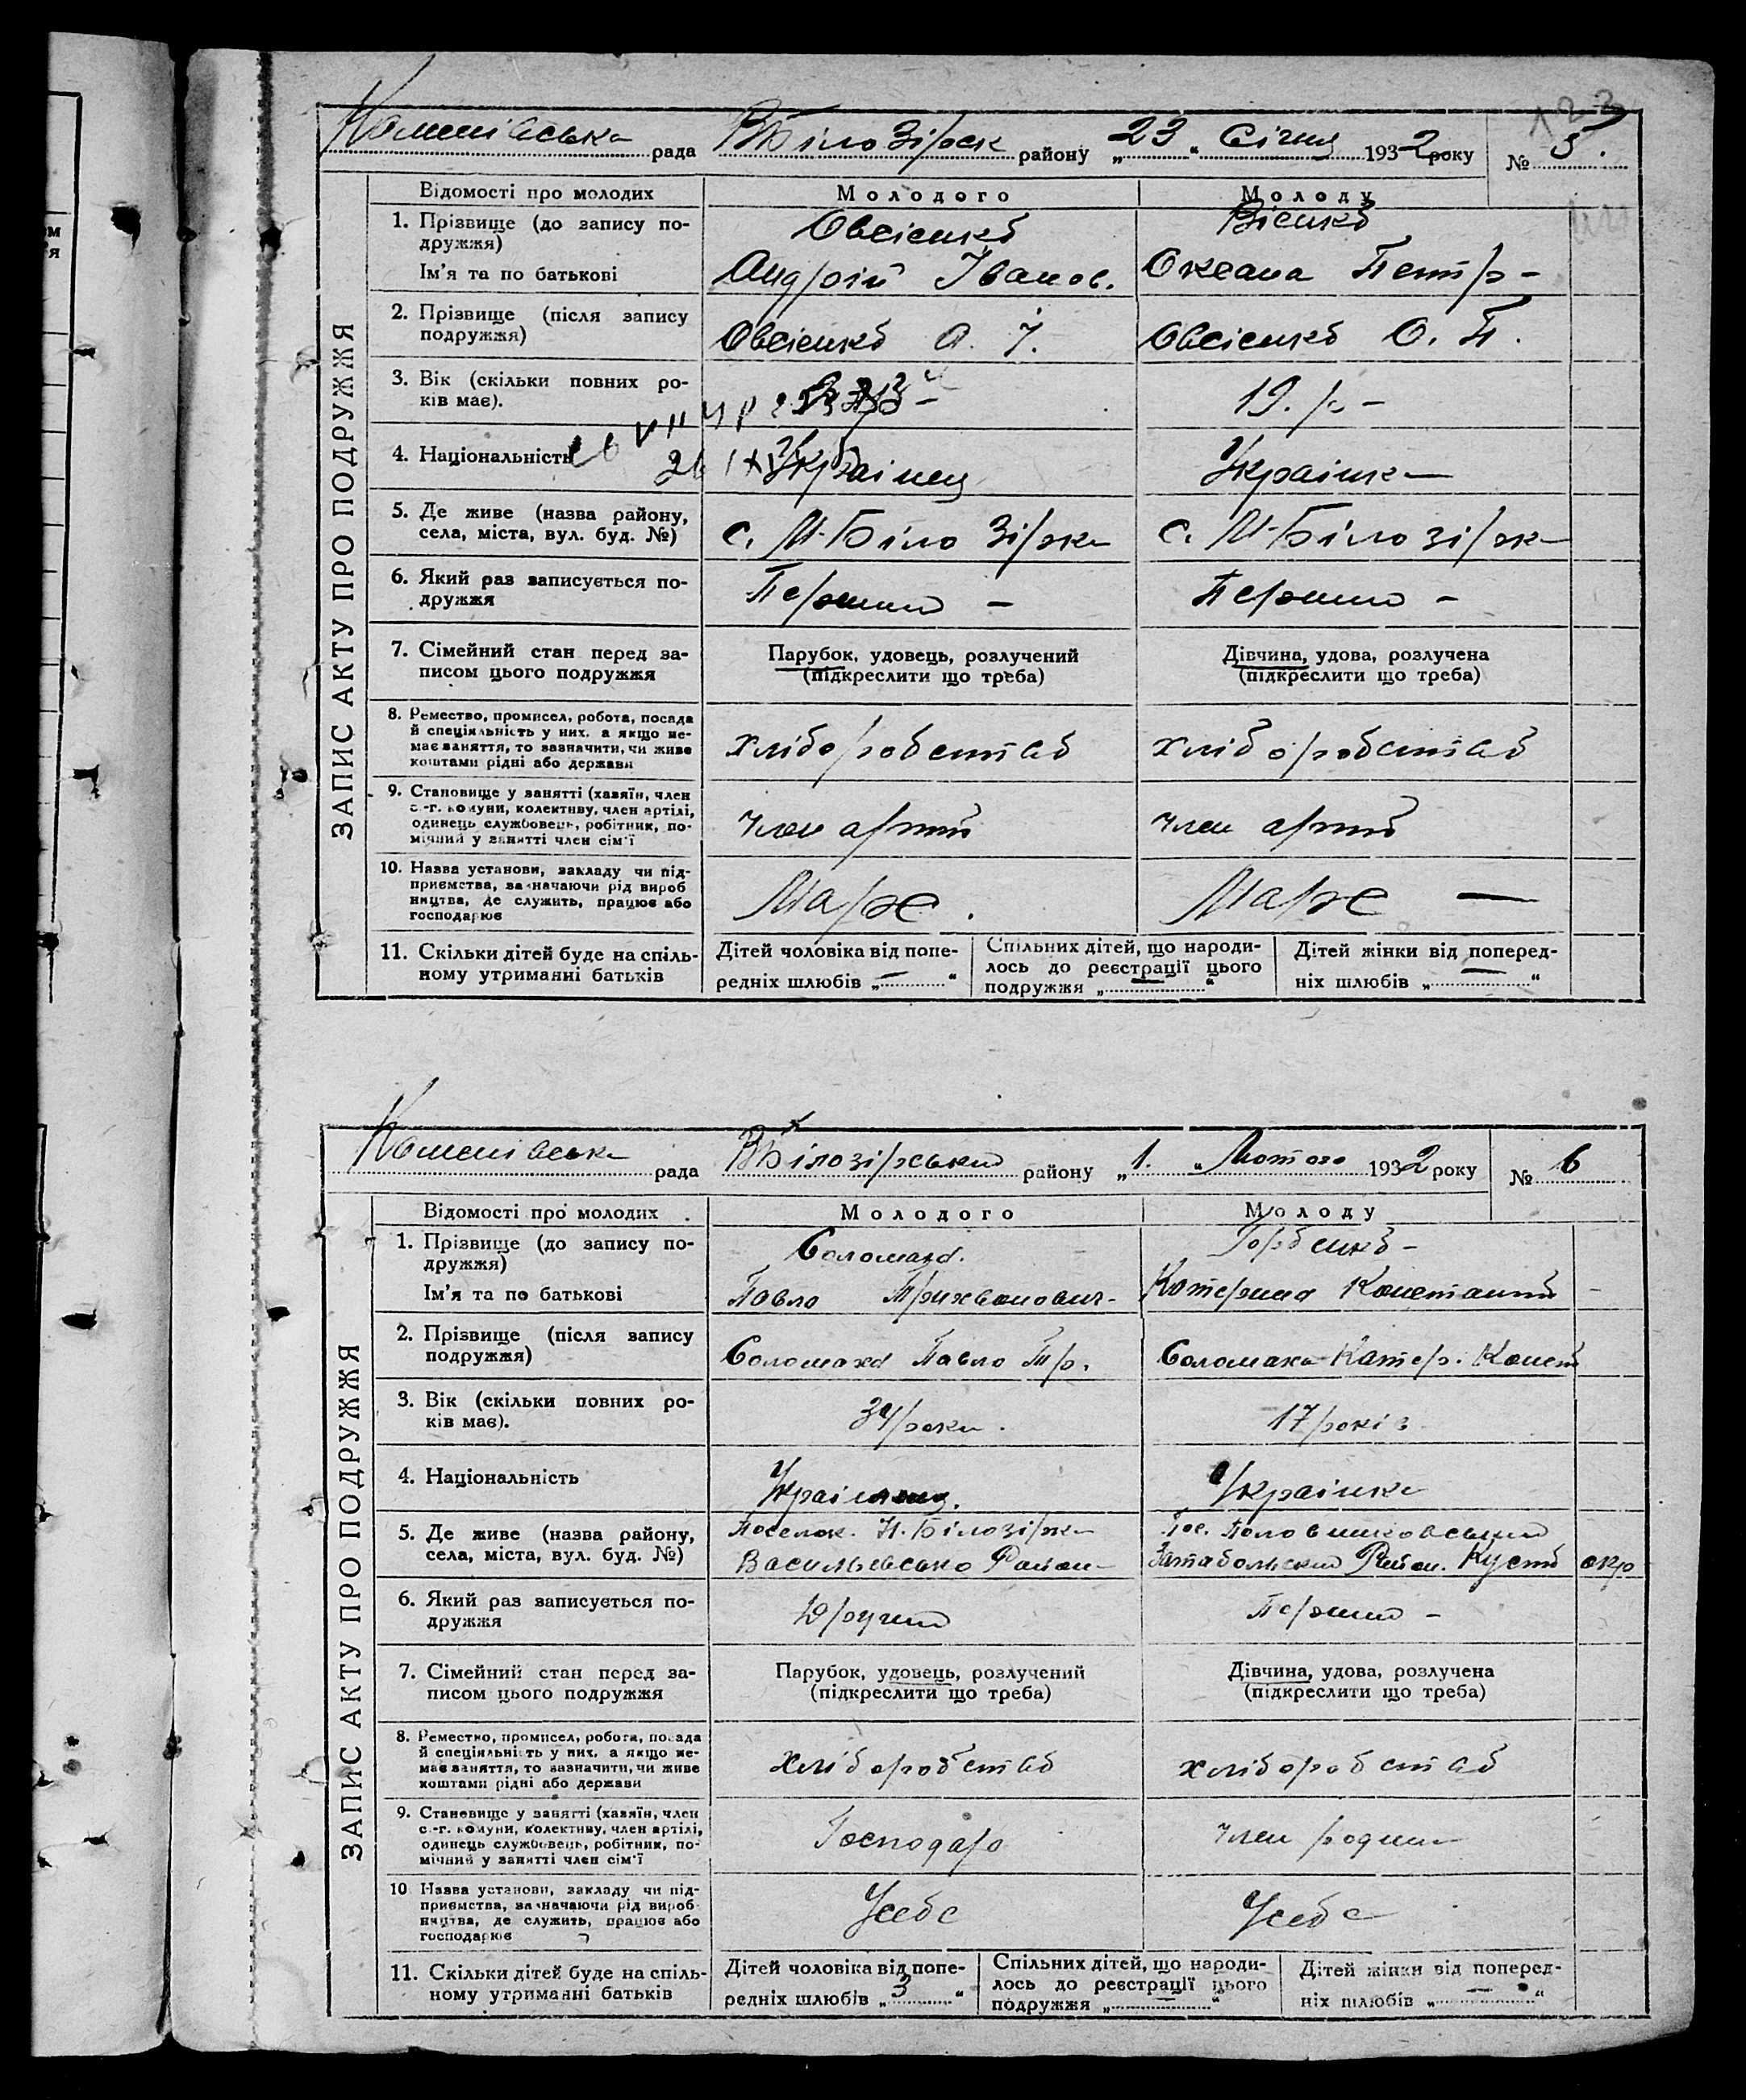 рада ВБілозірск району „23“ Січня 1932 року № 5.
Відомості про молодих
Молодого
Молоду
ЗАПИС АКТУ ПРО ПОДРУЖЖЯ
1. Прізвище (до запису по-
дружжя)
Овсієнко
Ім'я та по батькові
Андрій Іванов.
Оксана Петр-
2. Прізвище (після запису
подружжя)
Овсієнко А. І.
Овсієнко О. П.
3. Вік (скільки повних ро-
ків має).
19. р-
4. Національність
Українец
Українка
5. Де живе (назва району,
села, міста, вул. буд. №)
с. М-Біло Зірка
с. М-Білозірка
6. Який раз записується по-
дружжя
Перший -
Перший -
7. Сімейний стан перед за-
писом цього подружжя
Парубок, удовець, розлучений
(підкреслити що треба)
Дівчина, удова, розлучена
(підкреслити що треба)
8. Ремество, промисел, робота, посада
й спеціяльність у них, а якщо не-
має заняття, то зазначити, чи живе
коштами рідні або держави
хліборобство
хліборобство
9. Становище у занятті (хазяїн, член
с.-г. комуни, колективу, член артілі,
одинець службовець, робітник, по-
мічний у занятті член сім'ї
член артіі
член артіі
10. Назва установи, закладу чи під-
приємства, зазначаючи рід вироб
ництва, де служить, працює або
господарює
Маркс.
Маркс —
11. Скільки дітей буде на спіль-
ному утриманні батьків
Дітей чоловіка від попе-
редніх шлюбів „—“
Спільних дітей, що народи-
лось до реєстрації цього
подружжя „—“
Дітей жінки від поперед-
ніх шлюбів „—“
рада ВБілозірський району „1.“ Лютого 1932 року № 6
Відомості про молодих
Молодого
Молоду
ЗАПИС АКТУ ПРО ПОДРУЖЖЯ
1. Прізвище (до запису по-
дружжя)
Соломаха.
Горбенко -
Ім'я та по батькові
Павло Трихванович-
Катерина Констант
2. Прізвище (після запису
подружжя)
Соломаха Павло Тр.
Соломаха Катер. Конст
3. Вік (скільки повних ро-
ків має).
34 роки.
17 років
4. Національність
Українка
5. Де живе (назва району,
села, міста, вул. буд. №)
Поселок. Н. Білозірка
Васильевсько Район-
Район. Куст окр
6. Який раз записується по-
дружжя
Другий
Перший -
7. Сімейний стан перед за-
писом цього подружжя
Парубок, удовець, розлучений
(підкреслити що треба)
Дівчина, удова, розлучена
(підкреслити що треба)
8. Ремество, промисел, робота, посада
й спеціяльність у них, а якщо не-
має заняття, то зазначити, чи живе
коштами рідні або держави
хліборобство
хліборобство
9. Становище у занятті (хазяїн, член
с.-г. комуни, колективу, член артілі,
одинець службовець, робітник, по-
мічний у занятті член сім'ї
Господар
член родини
10 Назва установи, закладу чи під-
приємства, зазначаючи рід вироб
ництва, де служить, працює або
господарює
Усебе
Усебе
11. Скільки дітей буде на спіль-
ному утриманні батьків
Дітей чоловіка від попе-
редніх шлюбів „3“
Спільних дітей, що народи-
лось до реєстрації цього
подружжя „—“
Дітей жінки від поперед-
ніх шлюбів „—“